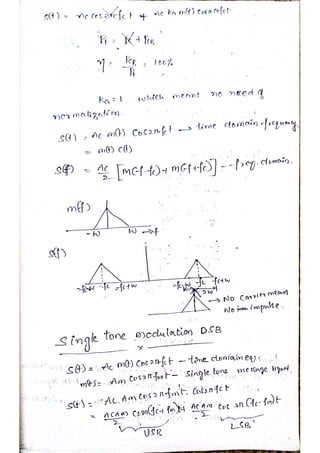 s(t) = Ac cos2πfct + Ac ka m(t) cos2πfct
Pt = Pc + PSB
η = PSB / Pt = 100%
ka = 1 which means no need of
normalization.
s(t) = Ac m(t) cos2πfct → time domain - frequency
= m(t) c(t)
S(f) = Ac/2 [M(f-fc) + M(f+fc)] -- freq. domain.
m(f)
-W W →f
S(f)
-fc-W -fc -fc+W fc-W fc fc+W
2W
→ No carrier means
No impulse.
Single tone modulation DSB
s(t) = Ac m(t) cos2πfct - time domain eq:
m(t) = Am cos2πfmt - single tone message signal.
s(t) = Ac. Am cos2πfmt. cos2πfct
= AcAm/2 cos2π(fc+fm)t + AcAm/2 cos 2π(fc-fm)t
USB LSB